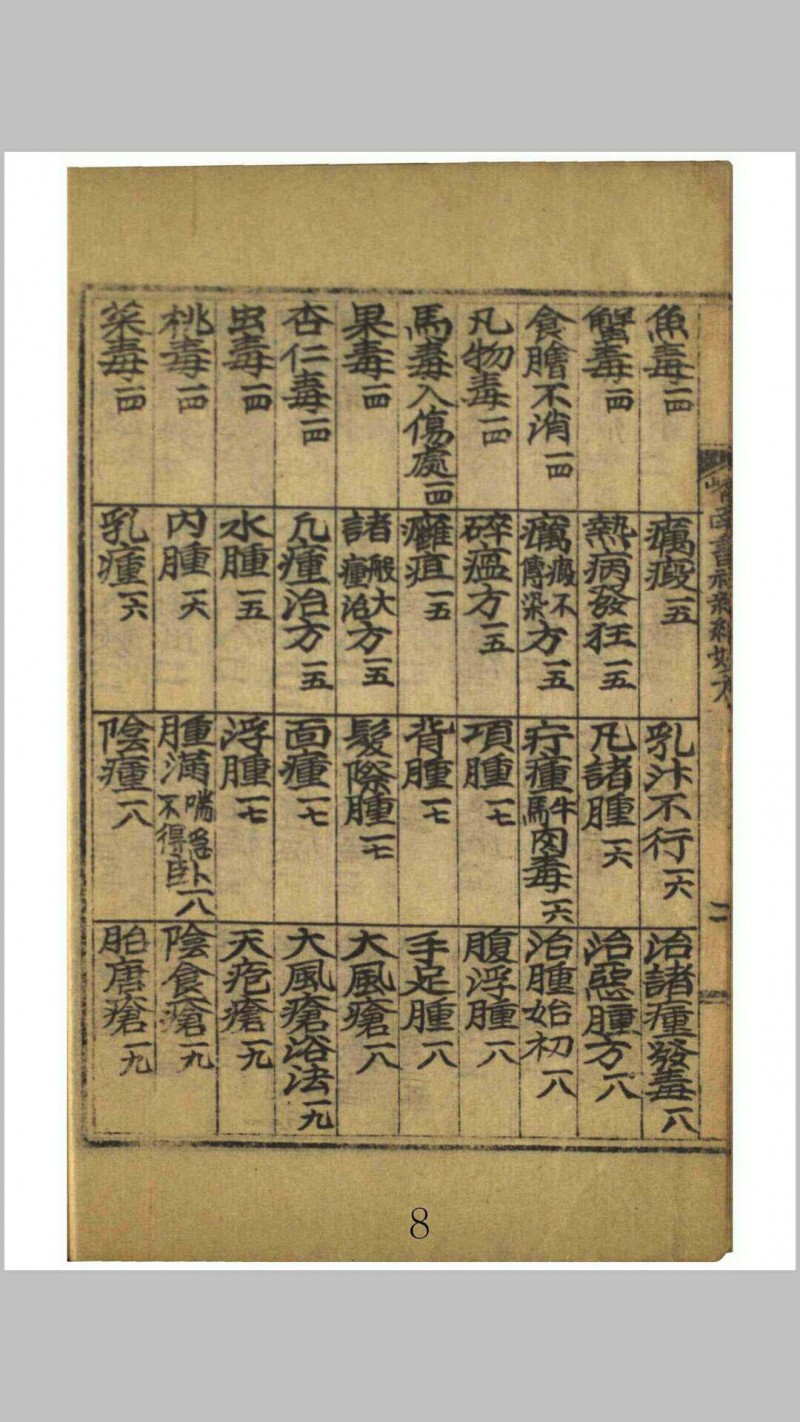 魚毒 一四
蟹毒 一四
食膾不消 一四
凡物毒 一四
馬毒入傷處 一四
果毒 一四
杏仁毒 一四
虫毒 一四
桃毒 一四
菜毒 一四
癘瘕 一五
熱病發狂 一五
癘瘕不傳染方 一五
碎瘟方 一五
癰疽 一五
諸般大瘇治方 一五
凡瘇治方 一五
水腫 一五
內腫 一六
乳瘇 一六
乳汁不行 一六
凡諸腫 一六
疔瘇牛馬肉毒 一六
項腫 一七
背腫 一七
髮際腫 一七
面瘇 一七
浮腫 一七
腫滿喘急不得臥 一八
陰瘇 一八
治諸瘇發毒 一八
治惡腫方 一八
治腫始初 一八
腹浮腫 一八
手足腫 一八
大風瘡 一八
大風瘡浴法 一九
天疱瘡 一九
陰食瘡 一九
胎唐瘡 一九
二
8